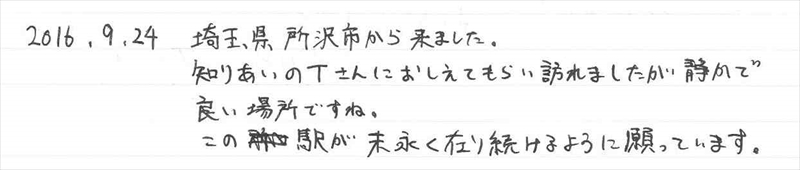 2016.9.24 埼玉県所沢市から来ました。
知りあいのTさんにおしえてもらい訪れましたが静かで
良い場所ですね。
この駅が末永く在り続けるように願っています。